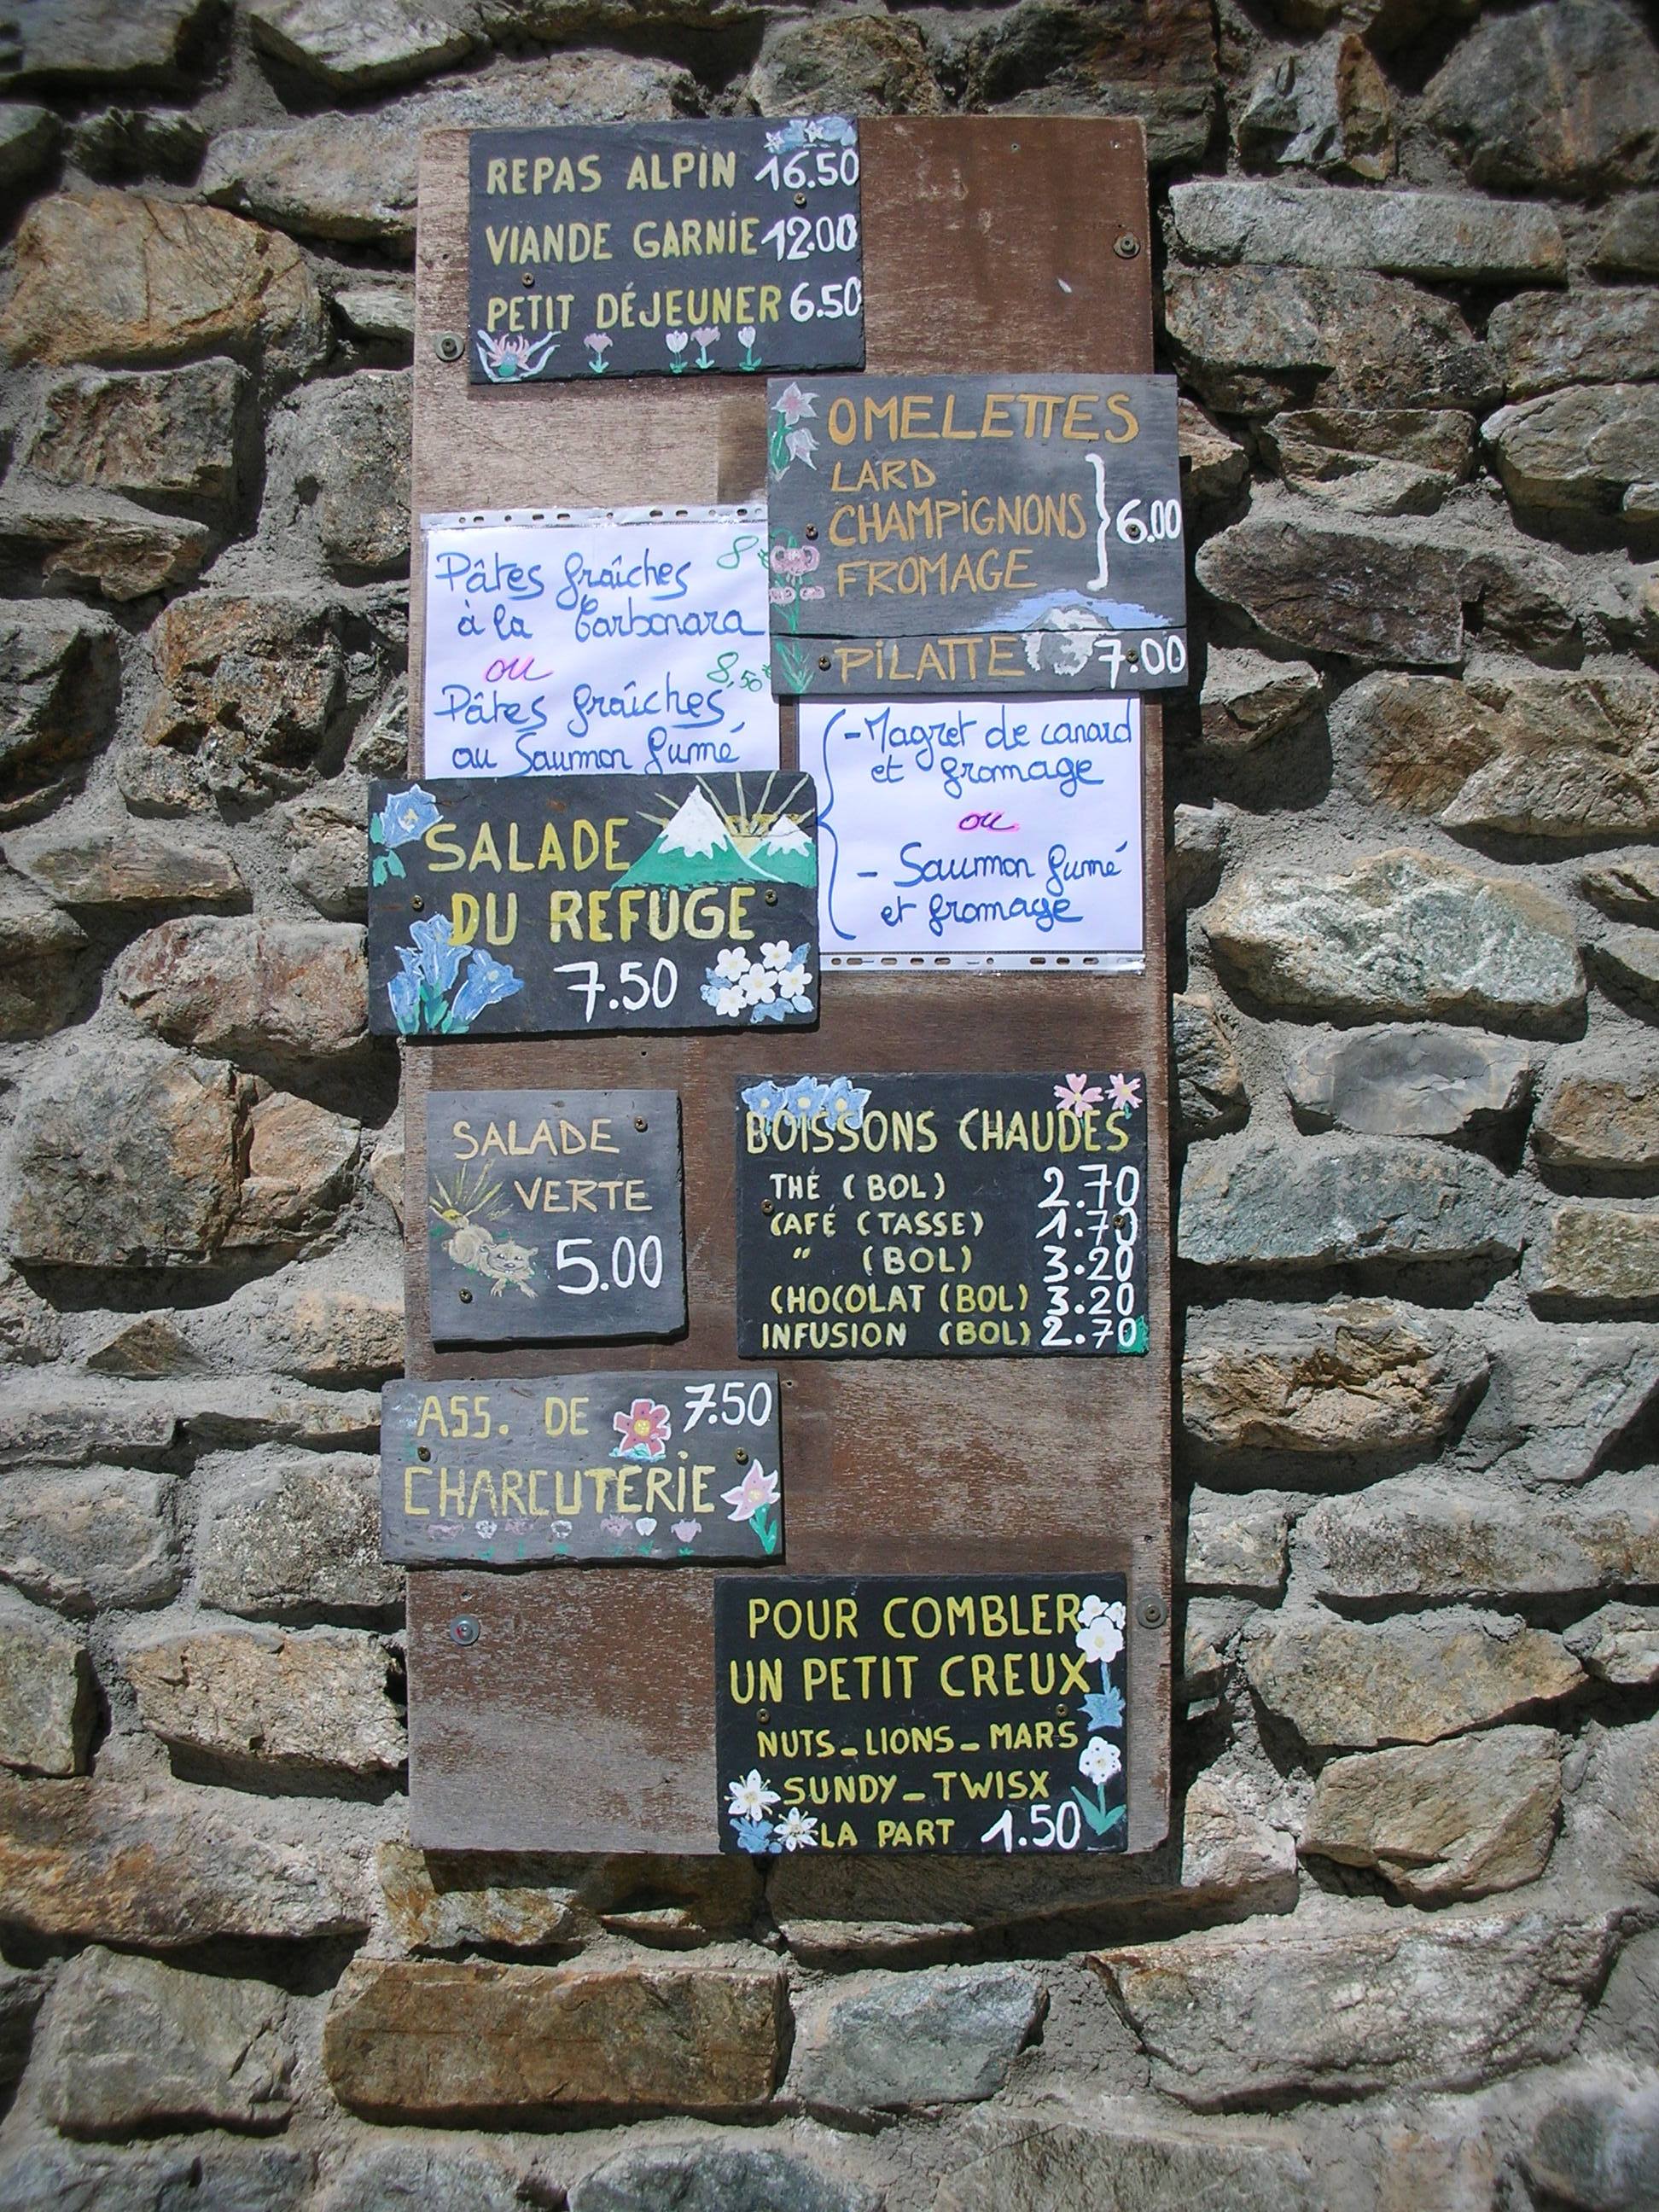 REPAS ALPIN 16.50
VIANDE GARNIE 12.00
PETIT DÉJEUNER 6.50
OMELETTES
LARD
CHAMPIGNONS } 6.00
FROMAGE
PILATTE 7.00
Pâtes fraîches 8€
à la Carbonara
ou
Pâtes fraîches 8,50€
au Saumon fumé
- Magret de canard
et fromage
ou
- Saumon fumé
et fromage
SALADE
DU REFUGE
7.50
SALADE
VERTE
5.00
BOISSONS CHAUDES
THÉ (BOL) 2.70
CAFÉ (TASSE) 1.70
" (BOL) 3.20
CHOCOLAT (BOL) 3.20
INFUSION (BOL) 2.70
ASS. DE 7.50
CHARCUTERIE
POUR COMBLER
UN PETIT CREUX
NUTS_LIONS_MARS
SUNDY_TWISX
LA PART 1.50